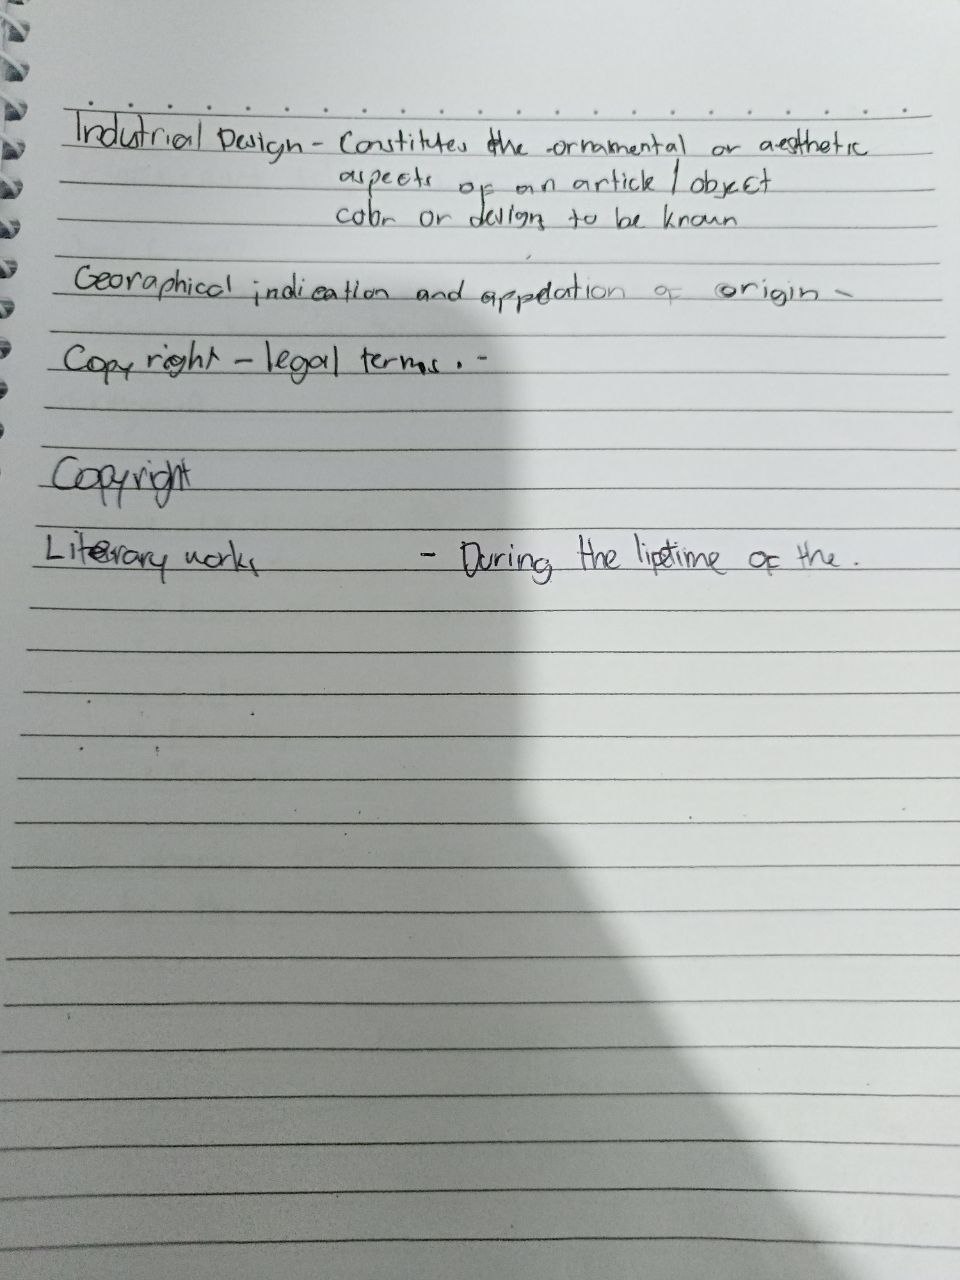 Industrial Design - Constitutes the ornamental or aesthetic
aspects of an article / object
color or design to be known
Georaphical indication and appelation of origin -
Copy right - legal terms. -
Copyright
Literary works - During the lifetime of the.